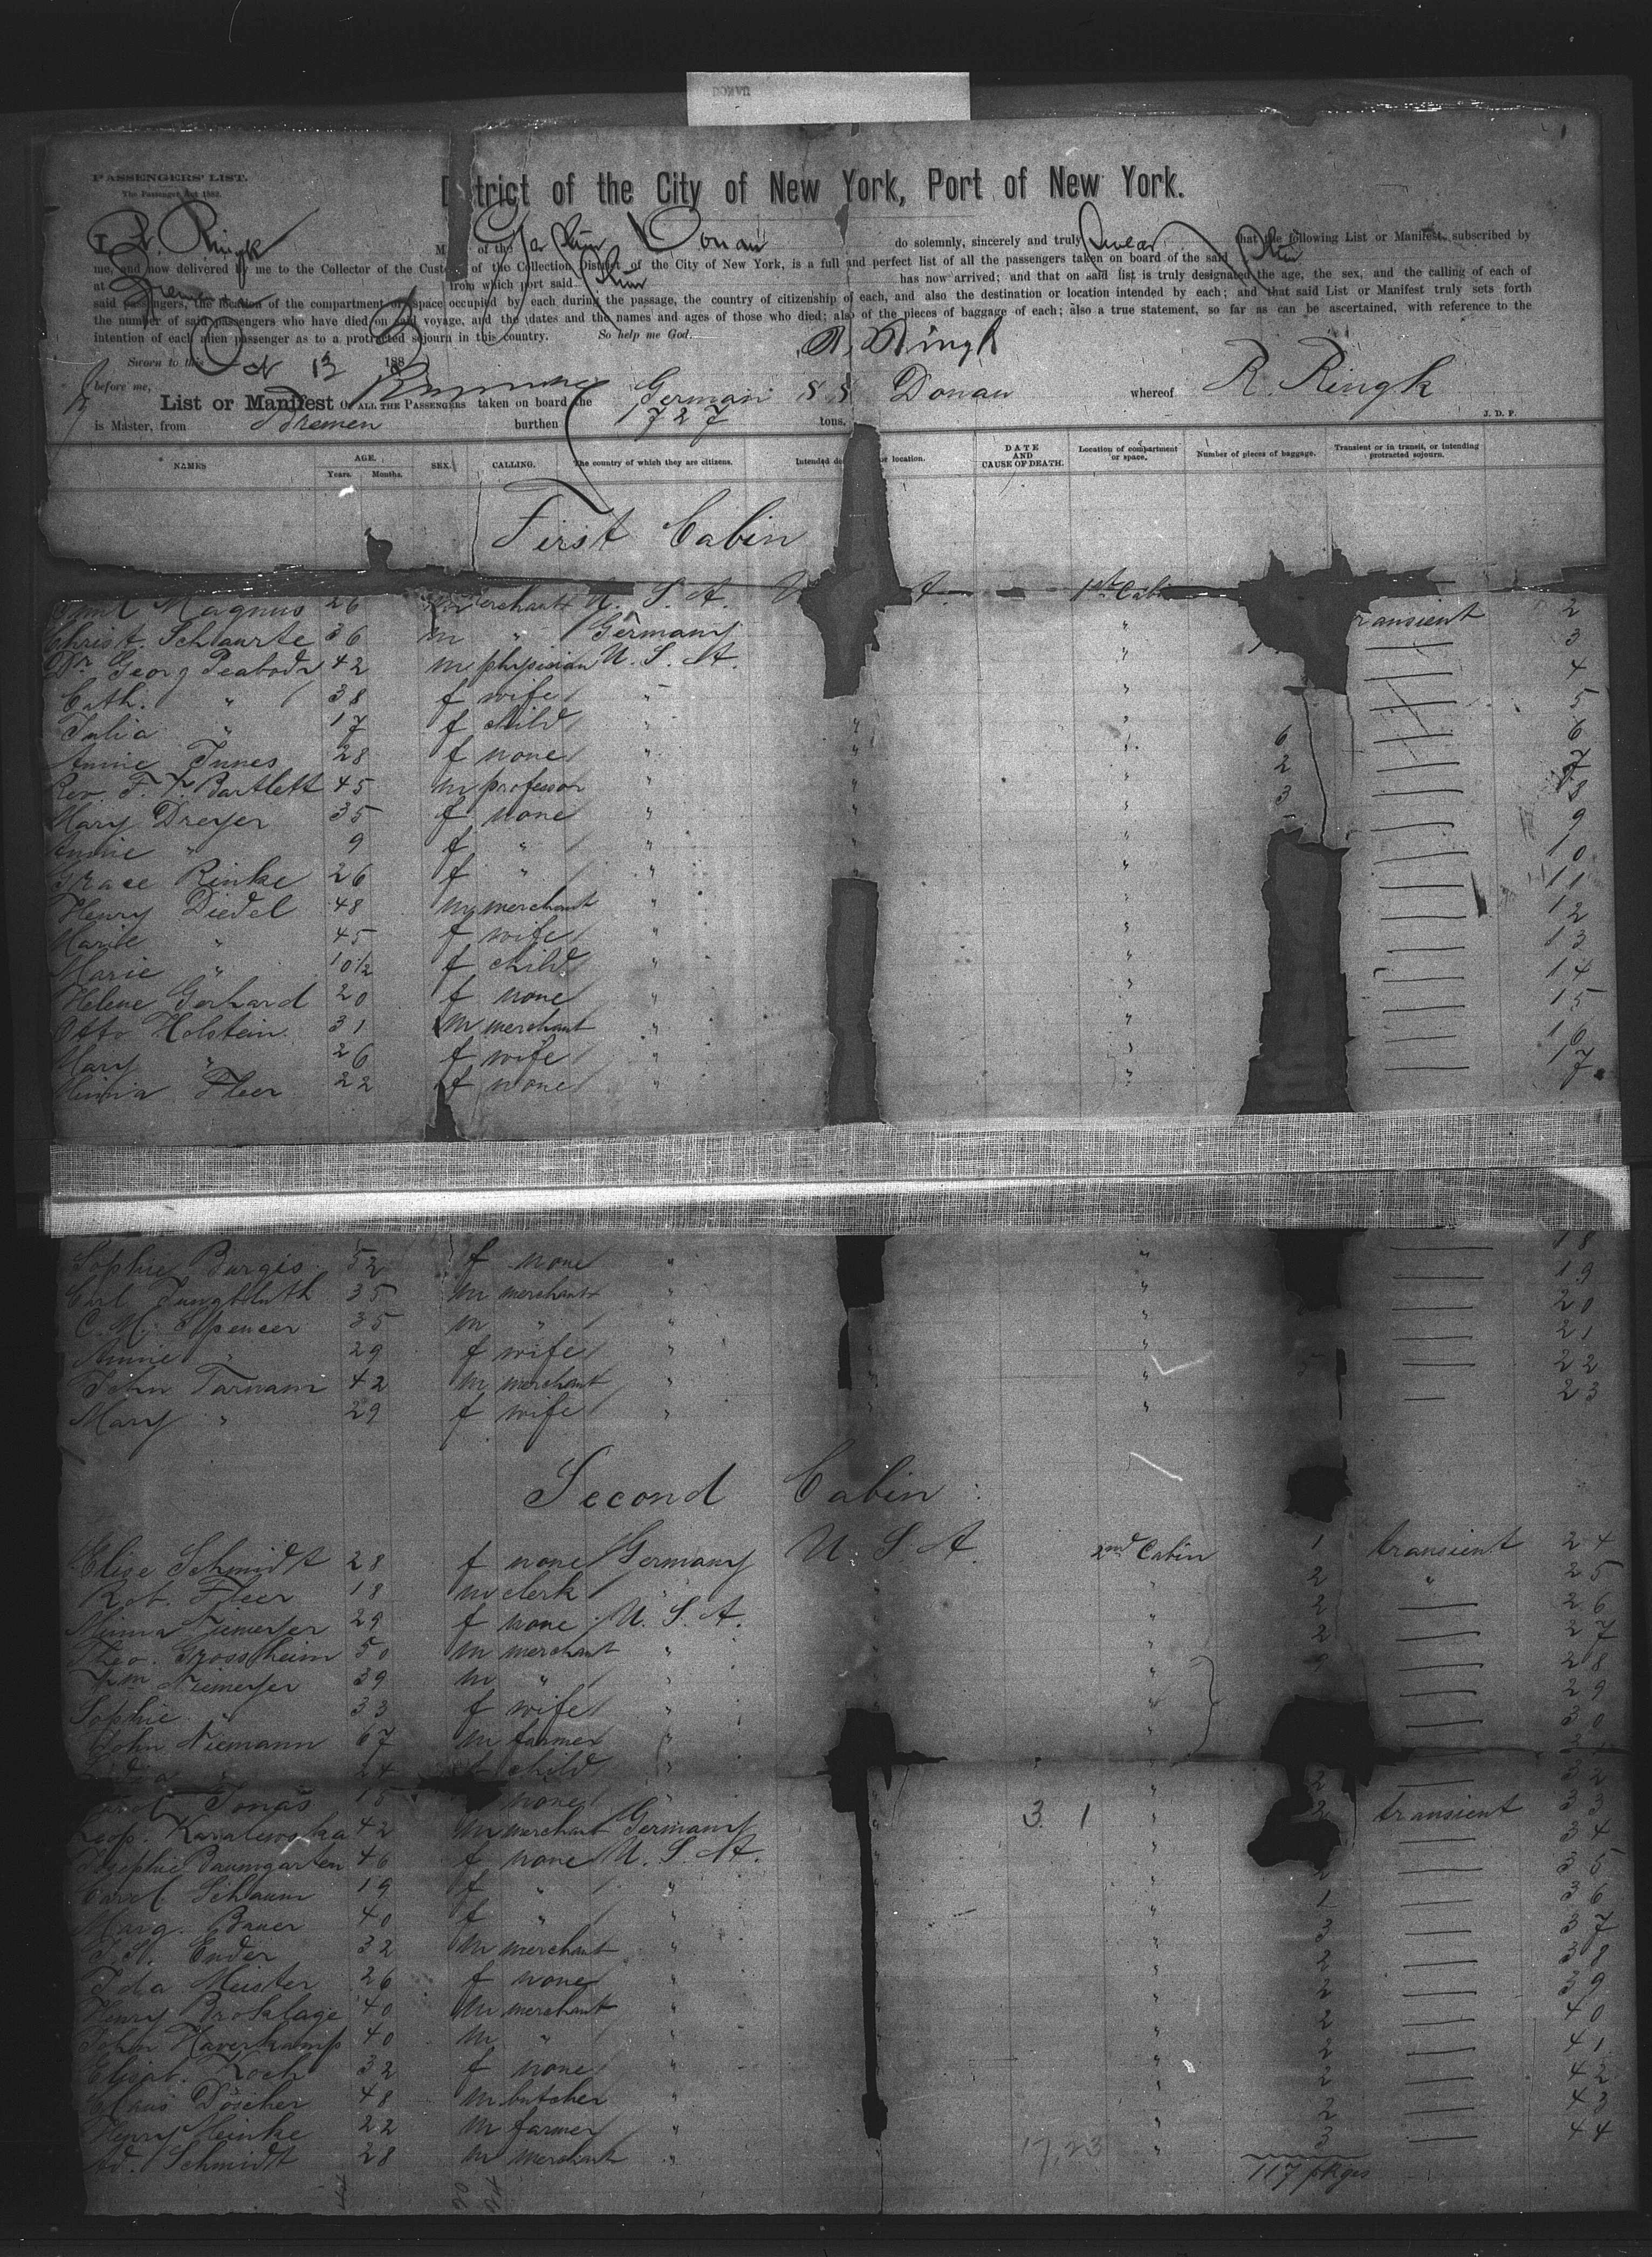 PASSENGERS' LIST.
The Passenger Act 1882.
District of the City of New York, Port of New York.
I, R. Ringk M of the Str Donau do solemnly, sincerely and truly swear that the following List or Manifest, subscribed by
me, and now delivered by me to the Collector of the Customs of the Collection District of the City of New York, is a full and perfect list of all the passengers taken on board of the said
at Bremen from which port said has now arrived; and that on said list is truly designated the age, the sex, and the calling of each of
said passengers, the location of the compartment or space occupied by each during the passage, the country of citizenship of each, and also the destination or location intended by each; and that said List or Manifest truly sets forth
the number of said passengers who have died on said voyage, and the dates and the names and ages of those who died; also of the pieces of baggage of each; also a true statement, so far as can be ascertained, with reference to the
intention of each alien passenger as to a protracted sojourn in this country. So help me God.
R. Ringk
Sworn to this Oct 13 188
before me,
List or Manifest OF ALL THE PASSENGERS taken on board the German SS Donau whereof R. Ringk
is Master, from Bremen burthen 1727 tons.
J. D. P.
NAMES AGE. Years. Months. SEX. CALLING. The country of which they are citizens. Intended de or location. DATE AND CAUSE OF DEATH. Location of compartment or space. Number of pieces of baggage. Transient or in transit, or intending protracted sojourn.
First Cabin
Magnus 26 merchant U. S. A. U A. 1st Cabin
Christ. Schaurte 36 m " Germany " ransient 2
Dr. Georg Peabody 42 m physician U. S. A. " — 3
Cath. " 38 f wife " " — 4
Julia " 17 f child " " " — 5
Annie Innes 28 f none " " " 6 — 6
Rev. F. T. Bartlett 45 m professor " " " 2 — 7
Mary Dreyer 35 f none " " " 3 — 8
Annie " 9 f " " " " — 9
Grace Rinke 26 f " " " " — 10
Henry Diedel 48 m merchant " " — 11
Marie " 45 f wife " " — 12
Marie " 10½ f child " " — 13
Helene Gerhard 20 f none " " — 14
Otto Holstein 31 m merchant " " — 15
Mary " 26 f wife " " — 16
Minna Fleer 22 f none " " — 17
Sophie Burgis 52 f none " " — 18
Carl Jungbluth 35 m merchant " " — 19
C. M. Spencer 35 m " " " — 20
Annie " 29 f wife " " — 21
John Tarnam 42 m merchant " " " — 22
Mary " 29 f wife " " " — 23
Second Cabin
Elise Schmidt 28 f none Germany U. S. A. 2nd Cabin 1 transient 24
Rob. Fleer 18 m clerk " " " 2 " 25
Minna Niemeyer 29 f none U. S. A. " 2 — 26
Theo. Grossheim 50 m merchant " " 2 — 27
Wm Niemeyer 39 m " " " — 28
Sophie " 33 f wife " " " — 29
John Niemann 67 m farmer " " — 30
" 24 f child " " —
Jonas 15 none " " 2 — 32
Leop. Karalewska 42 m merchant Germany " 3 1 " 2 transient 33
Josephie Baumgarten 46 f none U. S. A. " " — 34
Carol Schaum 19 f " " " " 2 — 35
Marg. Bauer 40 f " " " 1 — 36
Ender 32 m merchant " " 3 — 37
Ida Meister 26 f none " " 2 — 38
Henry Broklage 40 m merchant " " 2 — 39
John Haverkamp 40 m " " " 2 — 40
Elisab. Koch 32 f none " " 2 — 41
Claus Döscher 48 m butcher " " 2 — 42
Henry Heinke 22 m farmer " " 2 — 43
Ad. Schmidt 28 m merchant " " " 3 — 44
17,23
117 pkges